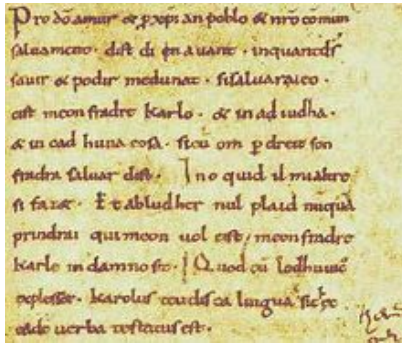 Pro dõ amur & p xp̃ian poblo & nr̃o cõmun
saluament. dist di en auant. inquantds̃
sauir & podir medunat. sisaluaraieo.
cist meon fradre Karlo. & in ad iudha.
& in cad huna cosa. sicũ om p dreit son
fradra saluar dist. Ino quid il mialtre
si faz&. Et abludher nul plaid nũquã
prindrai qui meon uol cist meon fradre
Karle in damno sit. Quod cũ lodhuuic̃
explesset. karolus teudisca lingua sic
eadẽ uerba testatus est.